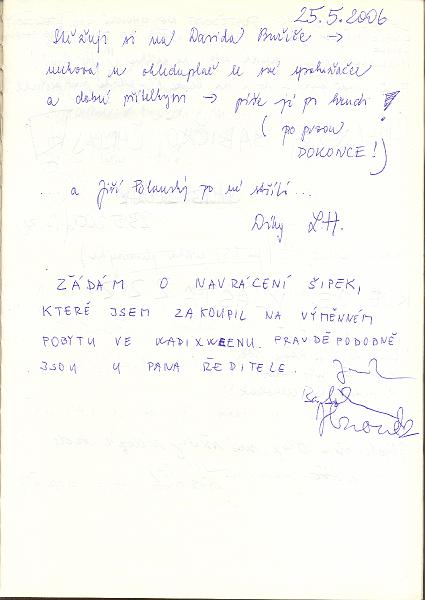 25.5.2006
Stěžuji si na Davida Buriče →
nechová se ohleduplně ke své spolužačce
a dobré přítelkyni → píše jí po hrudi!
(po prsou
DOKONCE!)
a Jiří Polanský po mě střílí...
Díky L.H.
ŽÁDÁM O NAVRÁCENÍ ŠIPEK,
KTERÉ JSEM ZAKOUPIL NA VÝMĚNNÉM
POBYTU VE WADIXWEENU. PRAVDĚPODOBNĚ
JSOU U PANA ŘEDITELE.